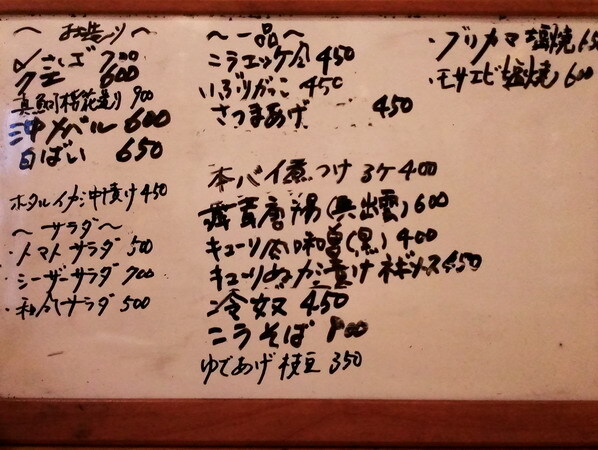 〜お造り〜
〆さば 700
クエ 600
真鯛桜花造り 900
沖メバル 600
白ばい 650
ホタルイカ沖漬け 450
〜サラダ〜
・トマトサラダ 500
・シーザーサラダ 700
・和風サラダ 500
〜一品〜
ニラエッグ 450
いぶりがっこ 450
さつまあげ 450
本バイ煮つけ 3ケ 400
唐揚 600
キューリ肉味噌(黒) 400
キューリぬか漬け ネギソース 450
冷奴 450
ニラそば 800
ゆであげ枝豆 350
・ブリカマ塩焼
・モサエビ塩焼 600